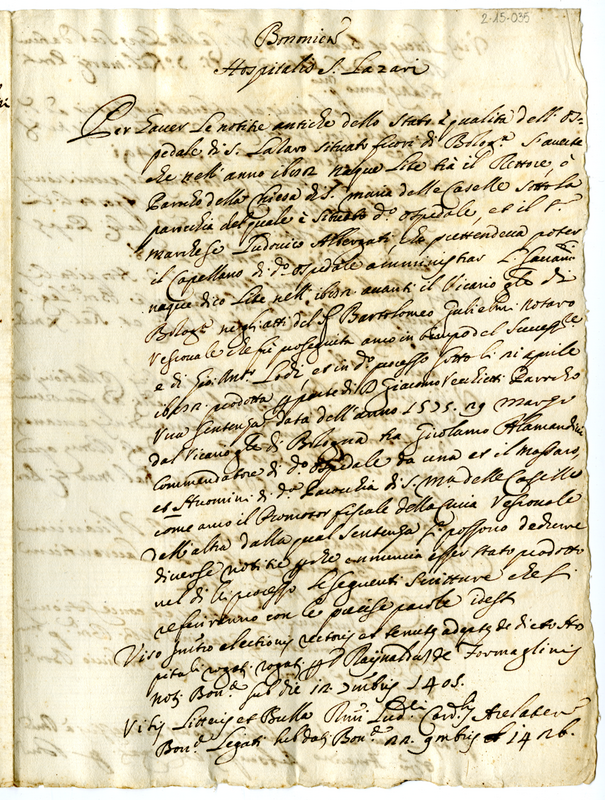 2-15-035
Bononien
Hospitalis S. Lazari
Per haver le notitie antiche dello stato e qualità dell' os-
pedale di S. Lazaro situato fuori di Bolog.a
che nell' anno naque lite trà il Rettore, ò
Parocho della Chiesa di S. Maria delle Caselle sotto la
parochia del quale è situato d.o ospedale, et il S.r
Marchese Ludovico che prettendeva poter
il Capellano di d.o ospedale amministrar
naque dico lite nell' avanti il Vicario g.le di
Bolog.a negl'atti del S.r Bartolomeo Notaro
Vescovale che fù proseguita anco in tempo del
e di Gio. Ant.o Lodi, et in d.o processo sotto li 21 aprile
prodotta p parte di D. Giacomo Parocho
una sentenza data dell' anno 1575. 29 Marzo
dal Vicario g.le di Bologna tra Girolamo
Commendatore di d.o ospedale da una et il Massaro,
et Huomini di d.a Parochia di S. M.a delle Caselle
come anco il Promotor fiscale della Curia Vescovale
dell' altra dalla qual sentenza si possono dedurre
diverse notitie esser stato prodotto
nel di processo le seguenti scritture che si
referiranno con le precise parole idest
Viso electionis rectoris et tenuta de dicto Hos
pitali rogati p Raynaldus de Formaglinis
not.s Bon.e sub die 12 Xmbris 1405.
Visis litteris et Bulla R.mi Lud.ci Card.lis Arelaten
Bon.e Legati Bon.e 22. 9mbris 1426.